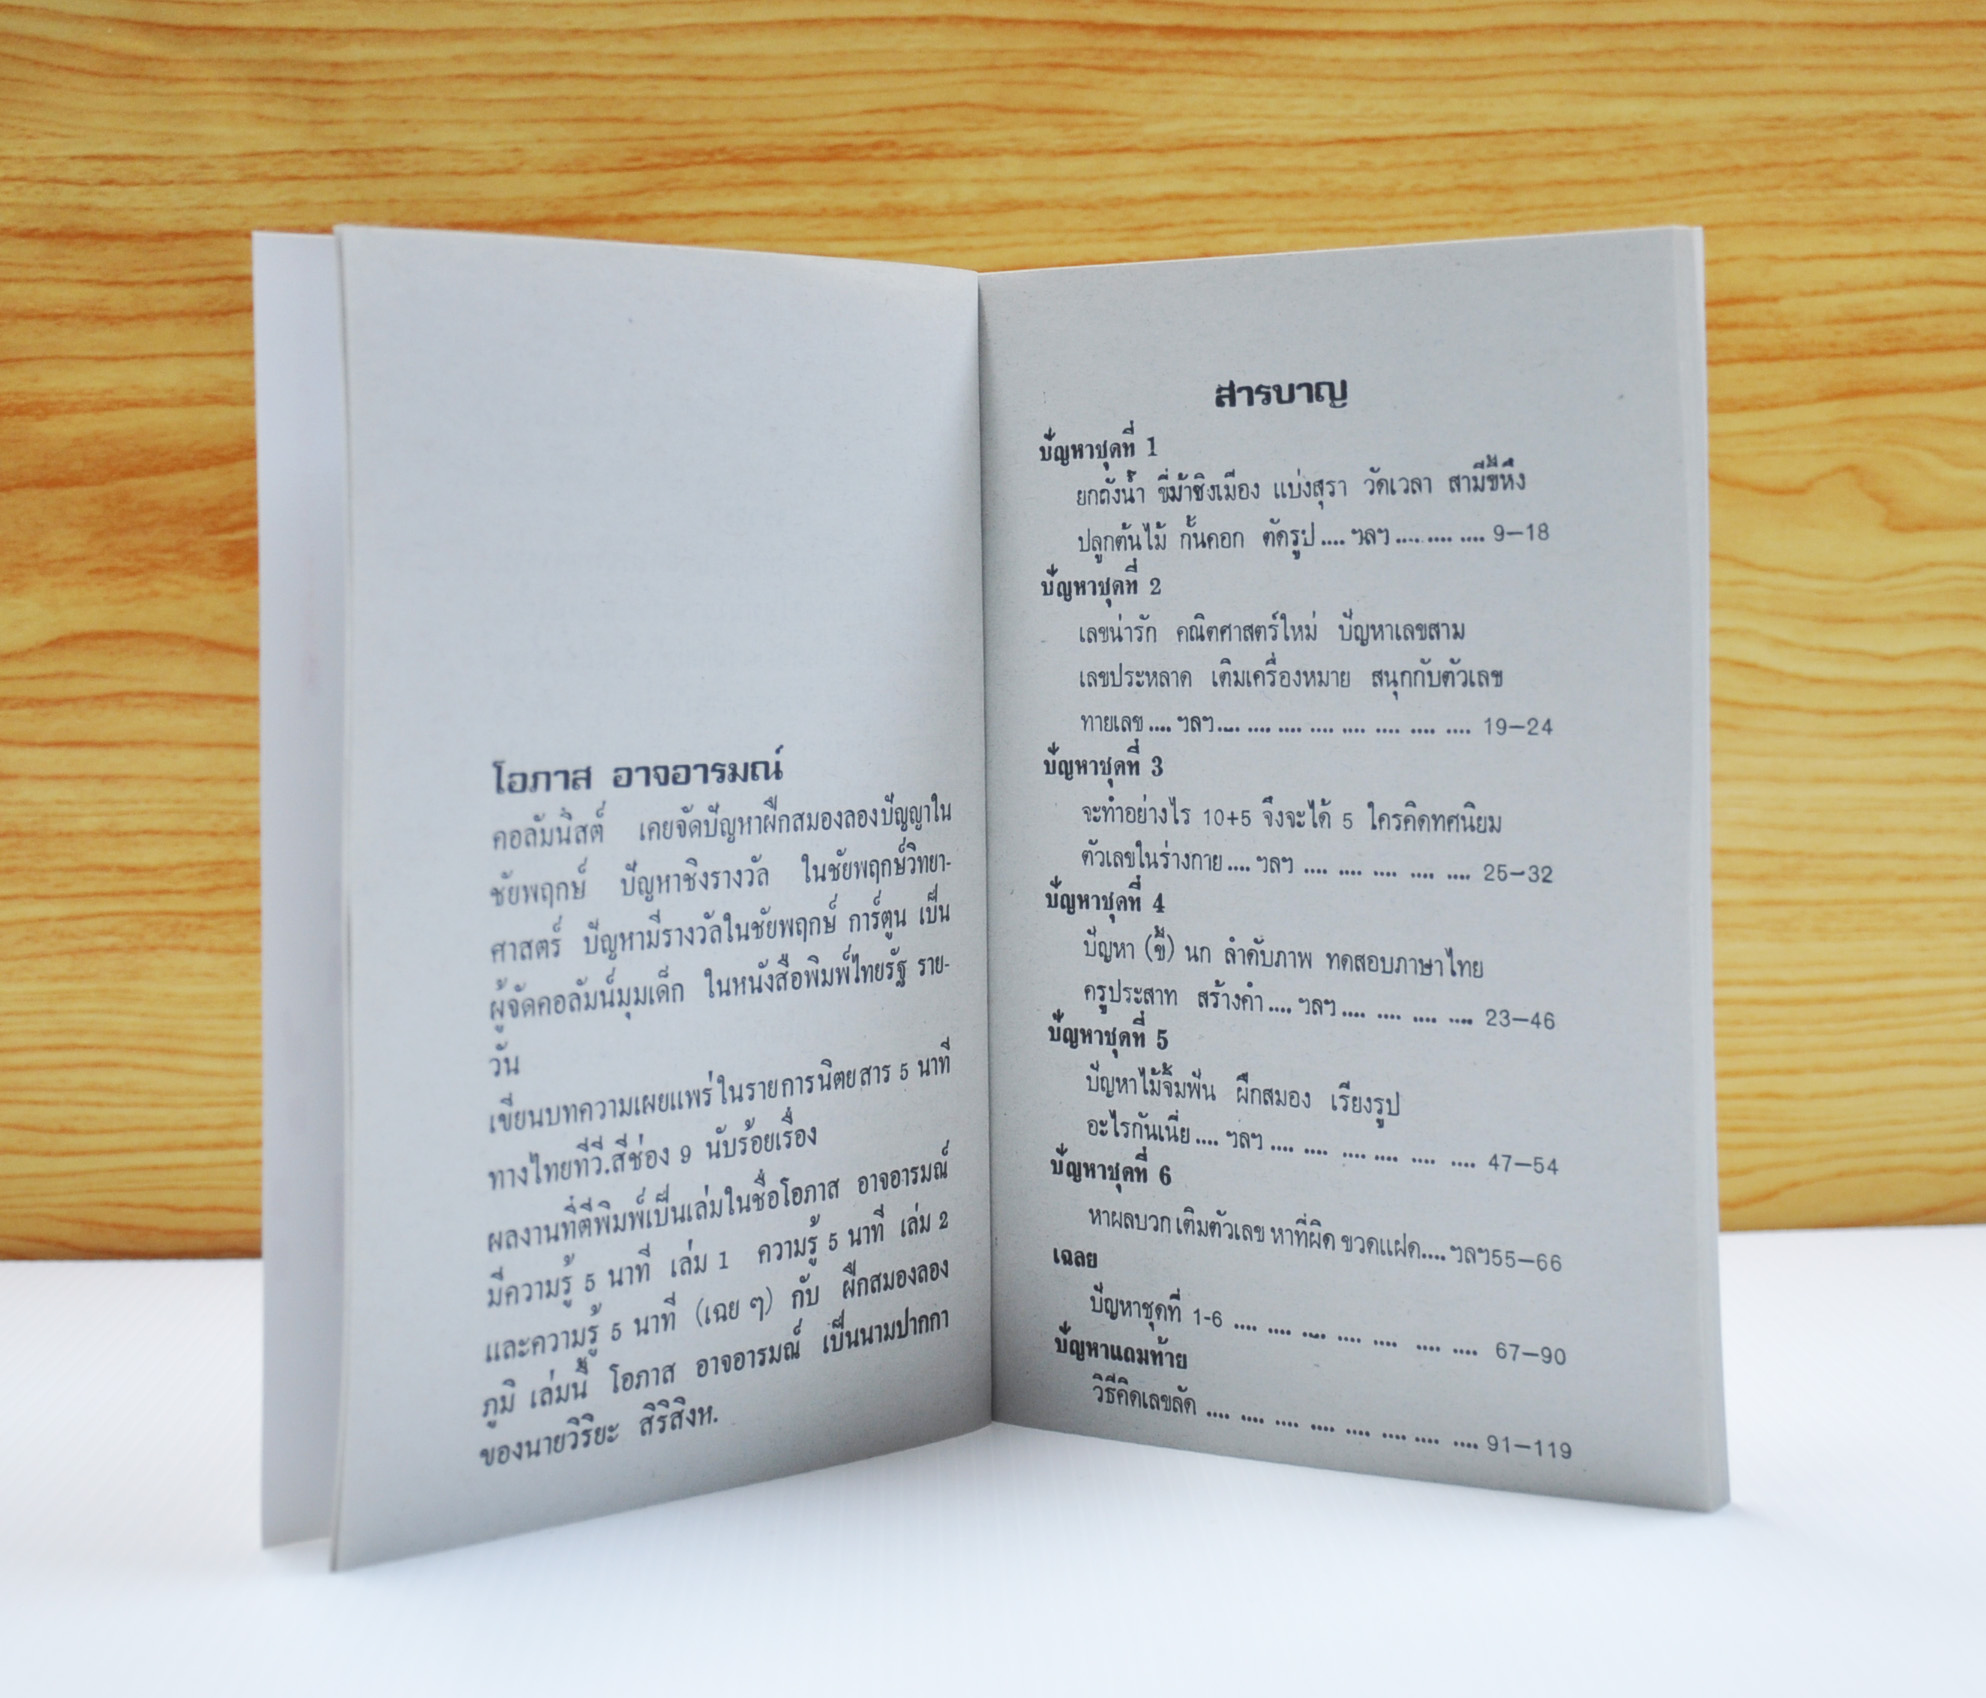 โอภาส อาจอารมณ์
คอลัมนิสต์ เคยจัดปัญหาฝึกสมองลองปัญญาใน
ชัยพฤกษ์ ปัญหาชิงรางวัล ในชัยพฤกษ์วิทยา-
ศาสตร์ ปัญหามีรางวัลในชัยพฤกษ์ การ์ตูน เป็น
ผู้จัดคอลัมน์มุมเด็ก ในหนังสือพิมพ์ไทยรัฐ ราย-
วัน
เขียนบทความเผยแพร่ในรายการนิตยสาร 5 นาที
ทางไทยทีวี.สีช่อง 9 นับร้อยเรื่อง
ผลงานที่ตีพิมพ์เป็นเล่มในชื่อโอภาส อาจอารมณ์
มีความรู้ 5 นาที เล่ม 1 ความรู้ 5 นาที เล่ม 2
และความรู้ 5 นาที (เฉย ๆ) กับ ฝึกสมองลอง
ภูมิ เล่มนี้ โอภาส อาจอารมณ์ เป็นนามปากกา
ของนายวิริยะ สิริสิงห.
สารบาญ
ปัญหาชุดที่ 1
ยกถังน้ำ ขี่ม้าชิงเมือง แบ่งสุรา วัดเวลา สามีขี้หึง
ปลูกต้นไม้ กั้นคอก ตัดรูป.... ฯลฯ.... .... .... 9–18
ปัญหาชุดที่ 2
เลขน่ารัก คณิตศาสตร์ใหม่ ปัญหาเลขสาม
เลขประหลาด เติมเครื่องหมาย สนุกกับตัวเลข
ทายเลข.... ฯลฯ.... .... .... .... .... .... .... .... 19–24
ปัญหาชุดที่ 3
จะทำอย่างไร 10+5 จึงจะได้ 5 ใครคิดทศนิยม
ตัวเลขในร่างกาย.... ฯลฯ .... .... .... .... .... 25–32
ปัญหาชุดที่ 4
ปัญหา (ขี้) นก ลำดับภาพ ทดสอบภาษาไทย
ครูประสาท สร้างคำ.... ฯลฯ.... .... .... .... 23–46
ปัญหาชุดที่ 5
ปัญหาไม้จิ้มฟัน ฝึกสมอง เรียงรูป
อะไรกันเนี่ย.... ฯลฯ.... .... .... .... .... .... 47–54
ปัญหาชุดที่ 6
หาผลบวก เติมตัวเลข หาที่ผิด ขวดแฝด.... ฯลฯ55–66
เฉลย
ปัญหาชุดที่ 1-6 .... .... .... .... .... .... .... 67–90
ปัญหาแถมท้าย
วิธีคิดเลขลัด .... .... .... .... .... .... .... .... 91–119